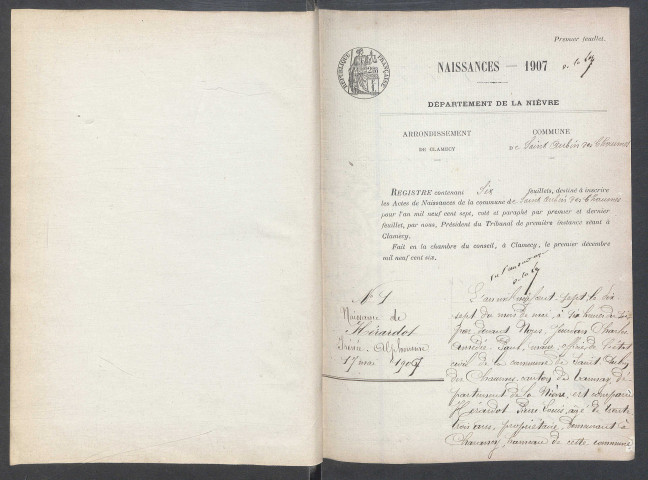 Premier feuillet.
RÉPUBLIQUE FRANÇAISE
NAISSANCES — 1907
DÉPARTEMENT DE LA NIÈVRE
ARRONDISSEMENT
DE CLAMECY
COMMUNE
De Saint Aubin des Chaumes
REGISTRE contenant Six feuillets, destiné à inscrire
les Actes de Naissances de la commune de Saint Aubin des Chaumes
pour l'an mil neuf cent sept, coté et paraphé par premier et dernier
feuillet, par nous, Président du Tribunal de première instance séant à
Clamecy.
Fait en la chambre du conseil, à Clamecy, le premier décembre
mil neuf cent six.
N° 1
Naissance de
Hérardot
Alphonsine
17 mai 1907
L'an mil neuf cent sept, le dix
sept du mois de mai, à six heures du
par devant Nous, Charles
Amédée Paul, maire, officier de l'état
civil de la commune de Saint Aubin
des Chaumes, canton de Tannay, dé-
partement de la Nièvre, est comparu
Hérardot Pierre Louis, âgé de trente
trois ans, propriétaire, demeurant à
Charancy, hameau de cette commune